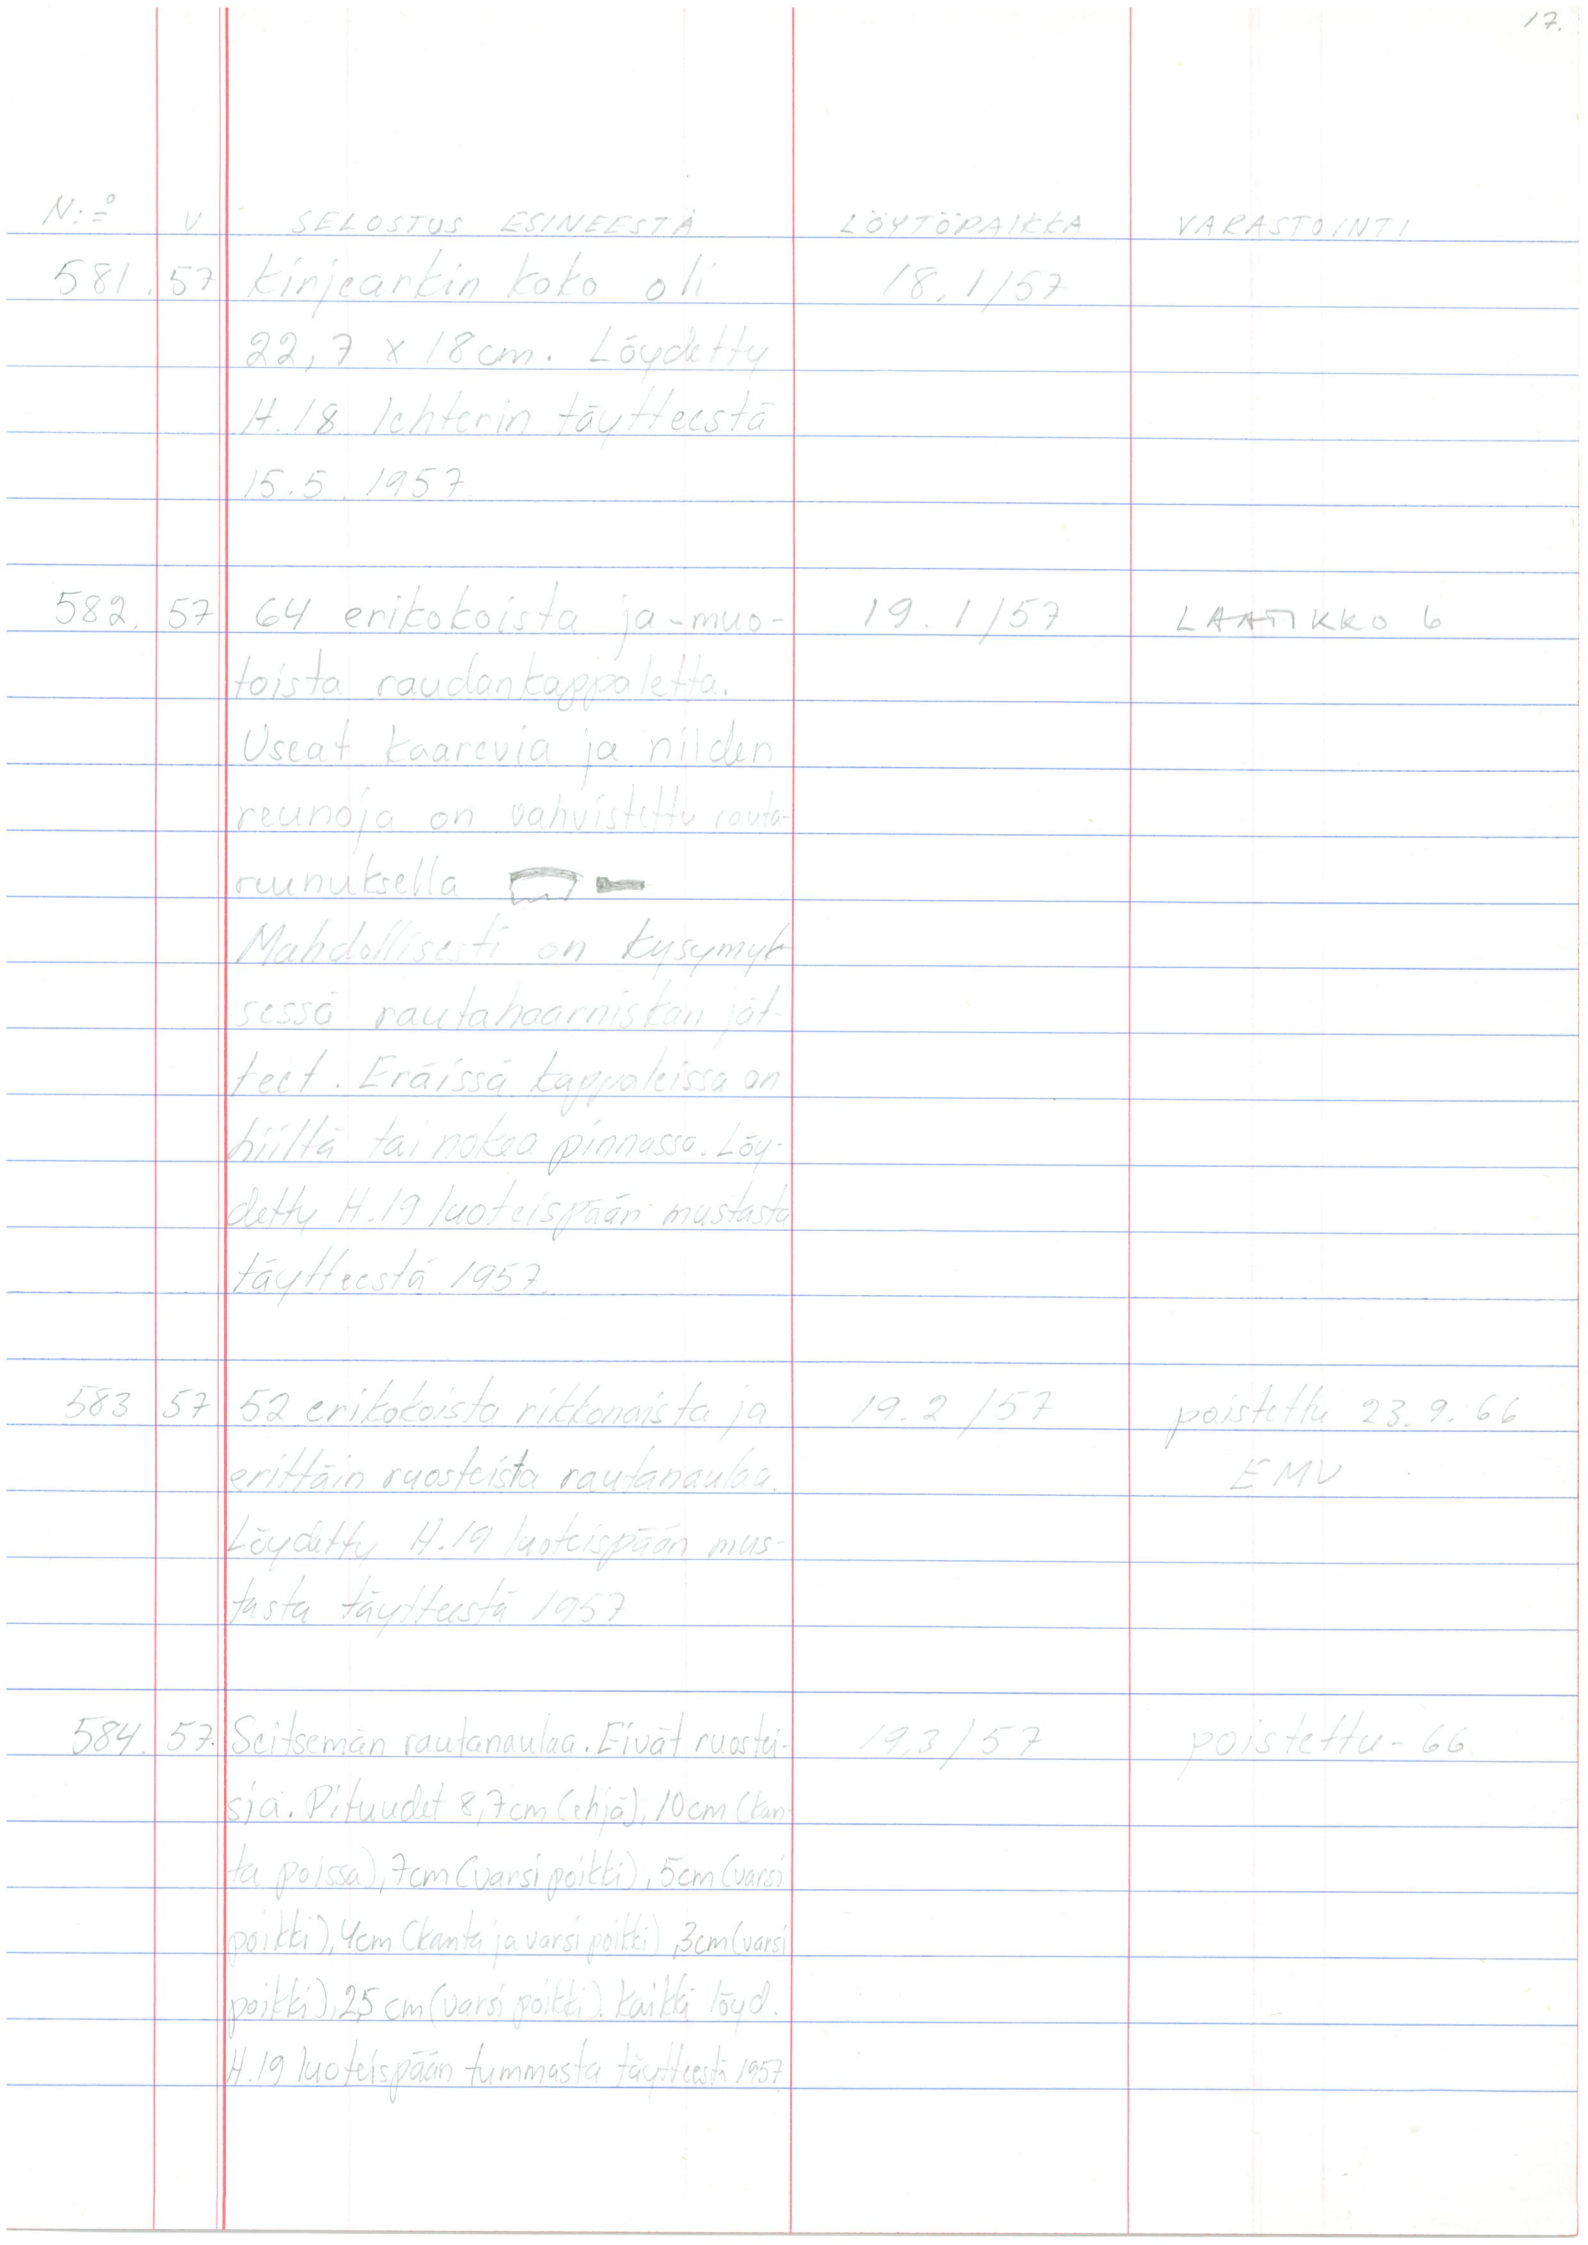 17.
N:o V SELOSTUS ESINEESTÄ LÖYTÖPAIKKA VARASTOINTI
581. 57 Kirjearkin koko oli 18.1/57
22,7 x 18cm. Löydetty
H.18 lehterin täytteestä
15.5.1957.
582. 57 64 erikokoista ja -muo- 19.1/57 LAATIKKO 6
toista raudankappaletta.
Useat kaarevia ja niiden
reunoja on vahvistettu rauta-
reunuksella
Mahdollisesti on kysymyk
sessä rautahaarniskan jät-
teet. Eräissä kappaleissa on
hiiltä tai nokea pinnassa. Löy-
detty H.19 luoteispään mustasta
täytteestä 1957.
583 57 52 erikokoista rikkonaista ja 19.2/57 poistettu 23.9.66
erittäin ruosteista rautanaulaa. EMV
Löydetty H.19 luoteispään mus-
tasta täytteestä 1957
584. 57. Seitsemän rautanaulaa. Eivät ruostei- 19.3/57 poistettu -66
sia. Pituudet 8,7cm (ehjä), 10cm (kan-
ta poissa), 7cm (varsi poikki), 5cm (varsi
poikki), 4cm (kanta ja varsi poikki), 3cm (varsi
poikki), 2,5 cm (varsi poikki). Kaikki löyd.
H.19 luoteispään tummasta täytteestä 1957